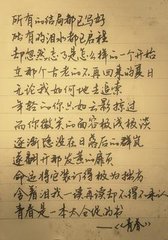 所有的结局都已写好
所有的泪水都已启程
却忽然忘了是怎么样的一个开始
在那个古老的不再回来的夏日
无论我如何地去追索
年轻的你只如云影掠过
而你微笑的面容极浅极淡
逐渐隐没在日落后的群岚
遂翻开那发黄的扉页
命运将它装订得极为拙劣
含着泪我一读再读却不得不承认
青春是一本太仓促的书
——《青春》